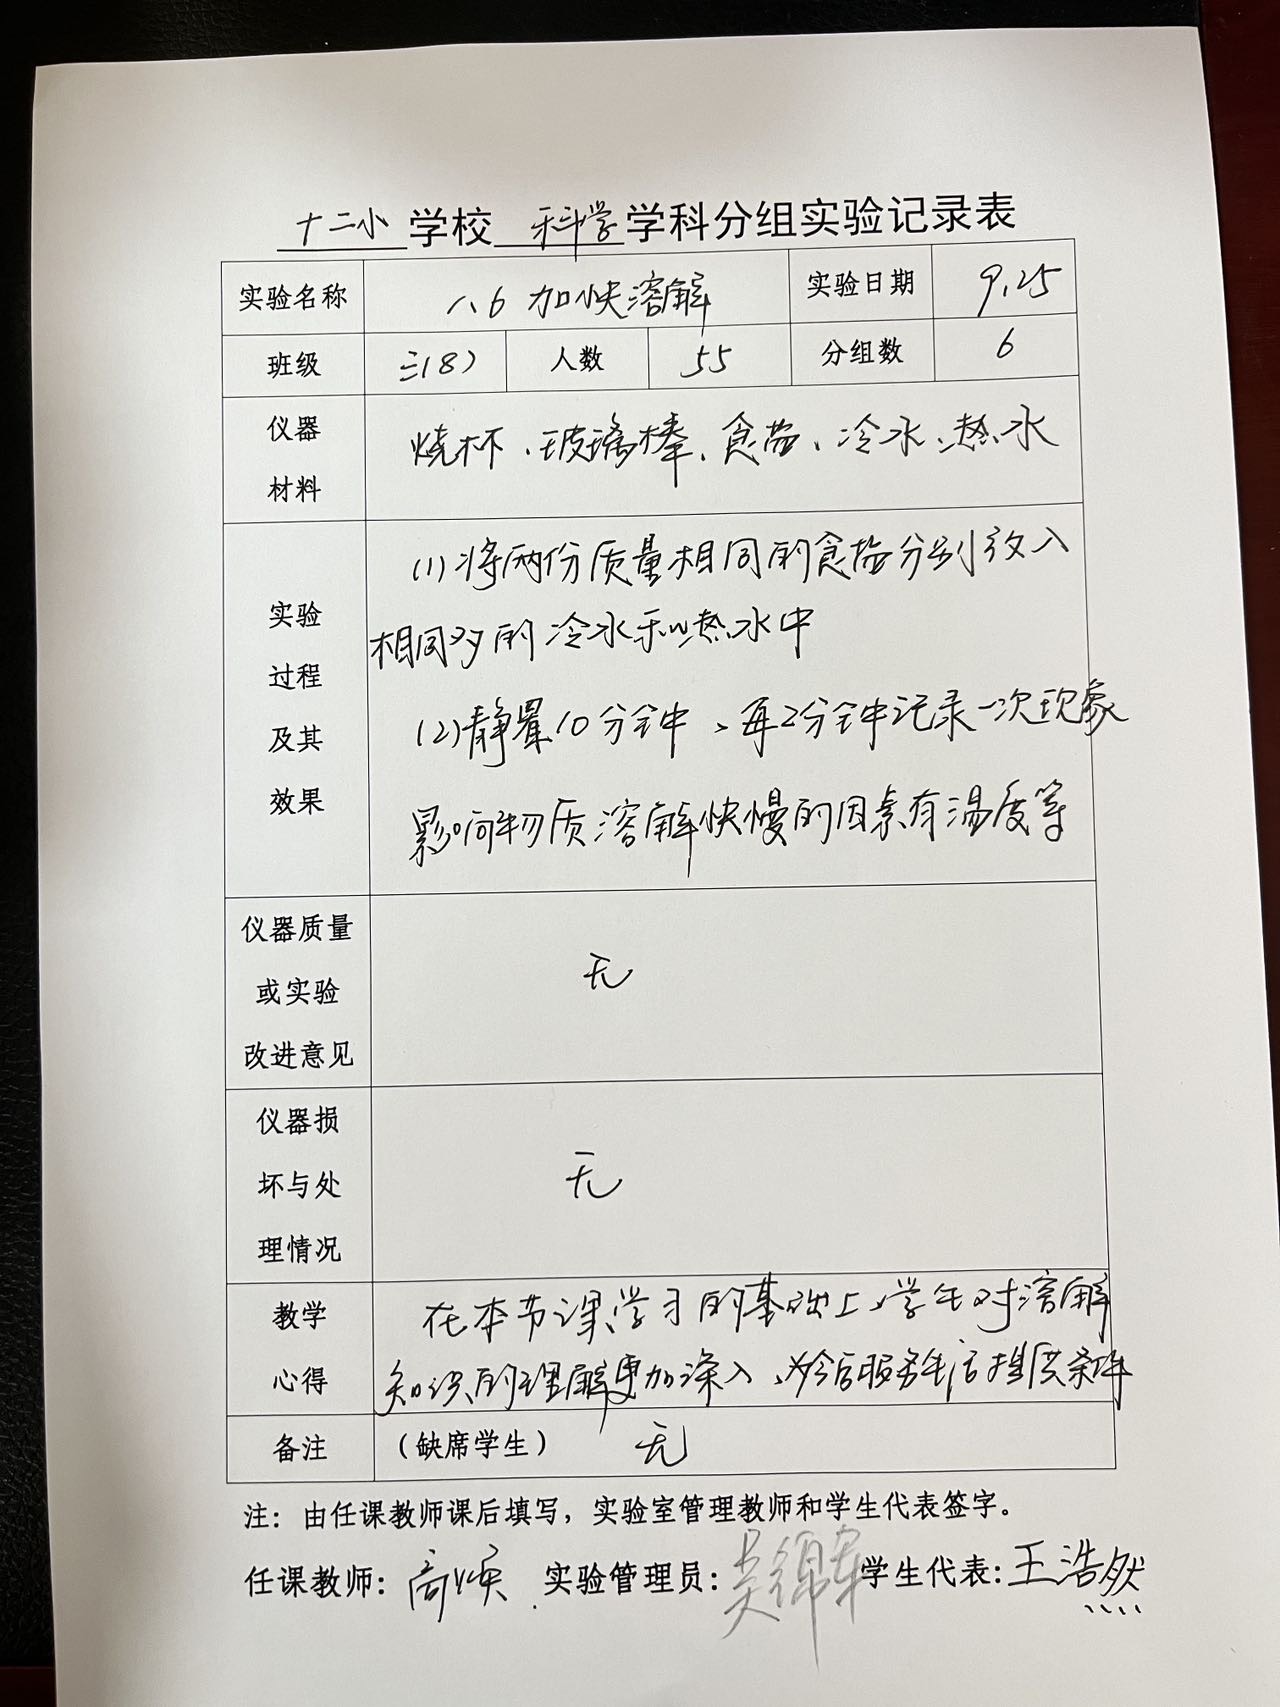 十二小学校 科学学科分组实验记录表
实验名称 1.6 加快溶解 实验日期 9.25
班级 三(8) 人数 55 分组数 6
仪器材料 烧杯、玻璃棒、食盐、冷水、热水
实验过程及其效果
(1)将两份质量相同的食盐分别放入
相同多的冷水和热水中
(2)静置10分钟、每2分钟记录一次现象
影响物质溶解快慢的因素有温度等
仪器质量或实验改进意见 无
仪器损坏与处理情况 无
教学心得 在本节课学习的基础上,学生对溶解
知识的理解更加深入、为今后服务生活提供条件
备注 (缺席学生) 无
注:由任课教师课后填写,实验室管理教师和学生代表签字。
任课教师:高焕 实验管理员:吴锦军 学生代表:王浩然